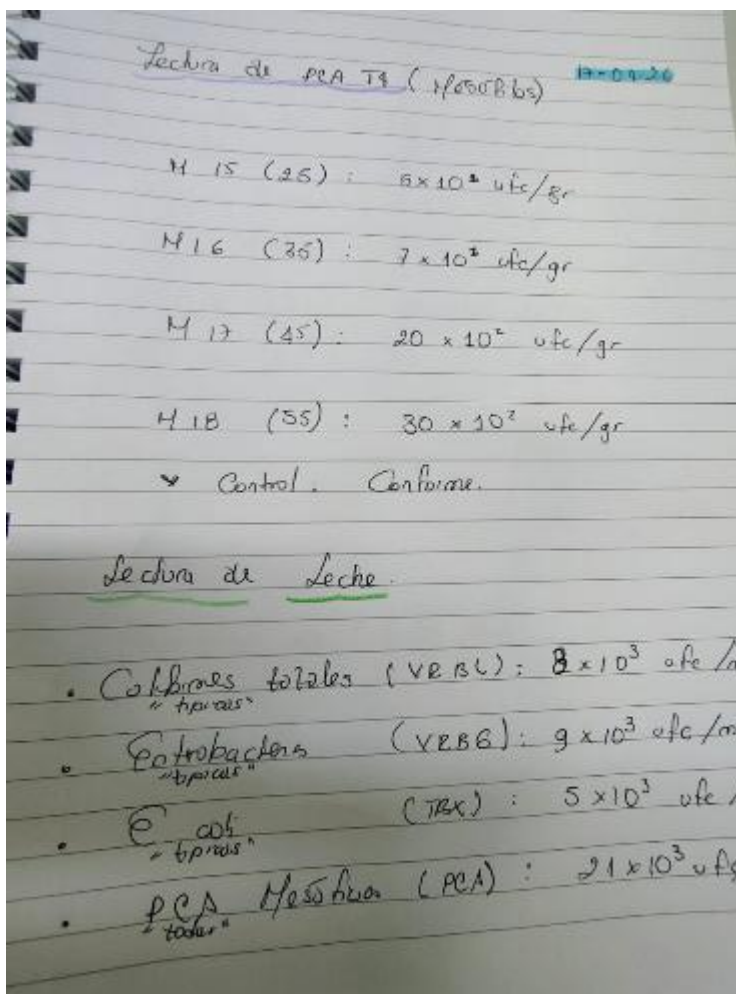 Lectura de PCA T4 (Mesófilos) 17-09-26
M 15 (25) : 5 x 10² ufc/gr
M 16 (35) : 7 x 10² ufc/gr
M 17 (45) : 20 x 10² ufc/gr
M 18 (55) : 30 x 10² ufc/gr
Control. Conforme.
Lectura de Leche.
• Coliformes totales (VRBL) : 8 x 10³ ufc/m
"típicas"
• Entrobacterias (VRBG) : 9 x 10³ ufc/m
"típicas"
• E coli (TBX) : 5 x 10³ ufc/
"típicas"
• PCA Mesófilos (PCA) : 21 x 10³ ufc
"todas"